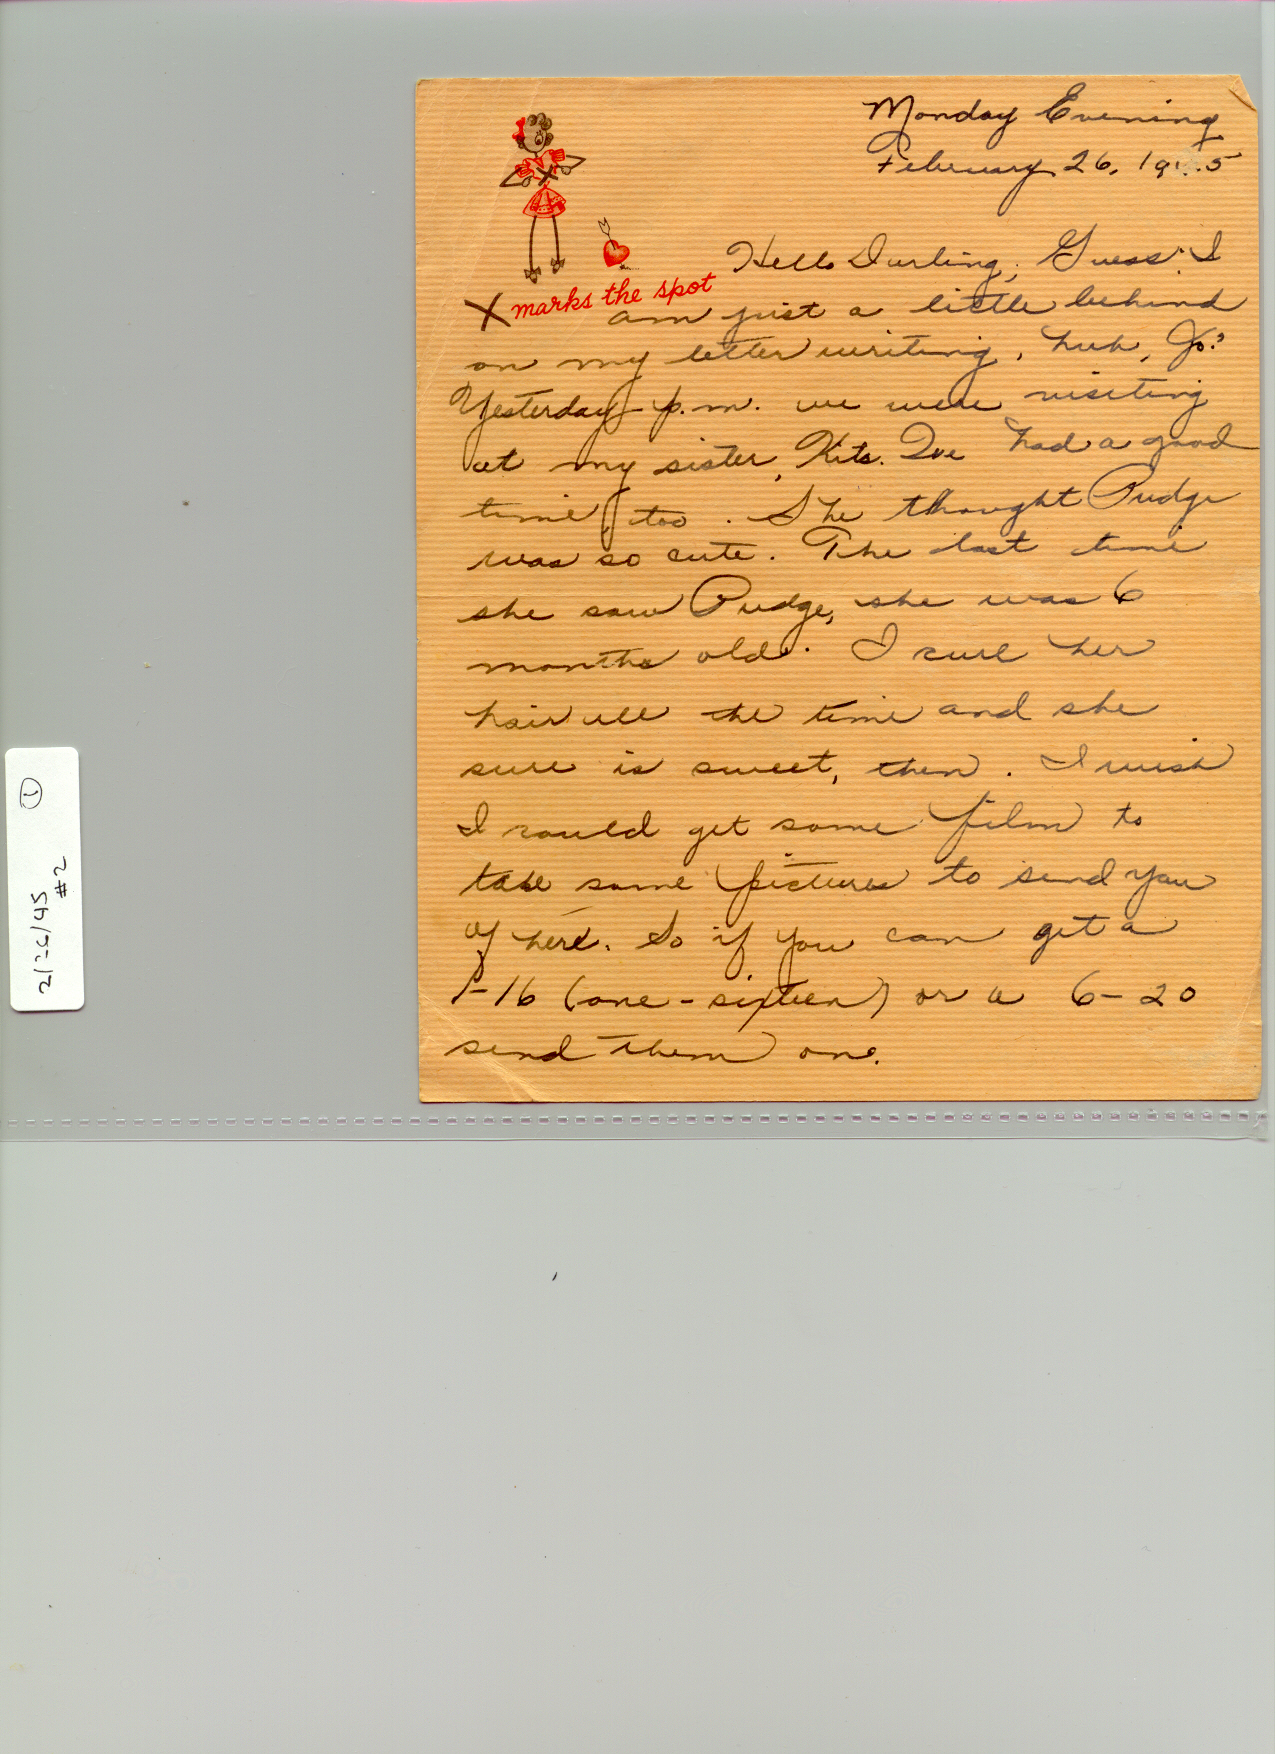 Monday Evening
February 26, 1945
Hello Darling, Guess I
X marks the spot
am just a little behind
on my letter writing, huh, Jo?
Yesterday p.m. we were visiting
at my sister, Kits. We had a good
time, too. She thought Pudge
was so cute. The last time
she saw Pudge, she was 6
months old. I curl her
hair all the time and she
sure is sweet, then. I wish
I could get some film to
take some pictures to send you
of here. So if you can get a
1-16 (one-sixteen) or a 6-20
send them on.
2/26/45 1
#2